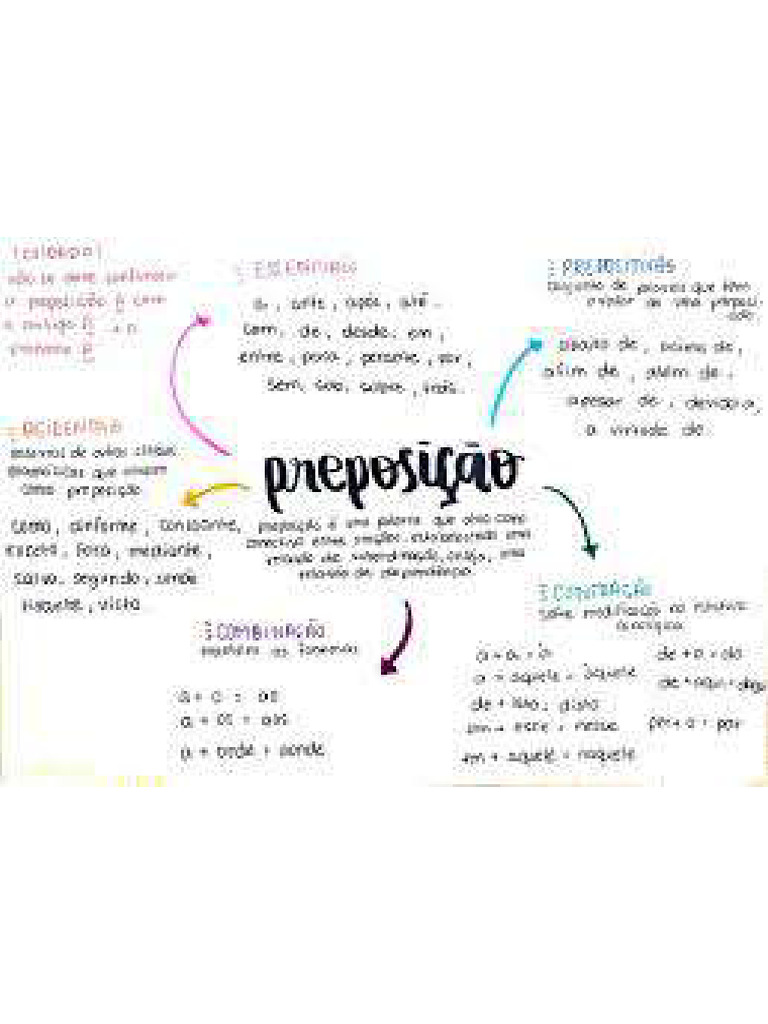 não se deve confundir
a preposição a com
o artigo a e o
pronome a
ESSENCIAIS
a, ante, após, até,
com, de, desde, em,
entre, para, perante, por,
sem, sob, sobre, trás.
PREPOSITIVAS
conjunto de palavras que têm
o valor de uma preposi-
ção.
abaixo de, acima de,
afim de, além de,
apesar de, devido a,
a virtude de
ACIDENTAIS
palavras de outras classes
gramaticais que
como preposição
como, conforme, consoante,
exceto, fora, mediante,
salvo, segundo, senão
visto
preposição
preposição é uma palavra que atua como
conectivo entre orações, estabelecendo uma
relação de subordinação, ou seja, uma
relação de dependência.
COMBINAÇÃO
mantém os fonemas
a + o = ao
a + os = aos
a + onde = aonde
CONTRAÇÃO
sofre modificação na estrutura
fonológica
a + a = à
a + aquele = àquele
de + isto = disto
em + esse = nesse
em + aquele = naquele
de + o = do
de + aqui = daqui